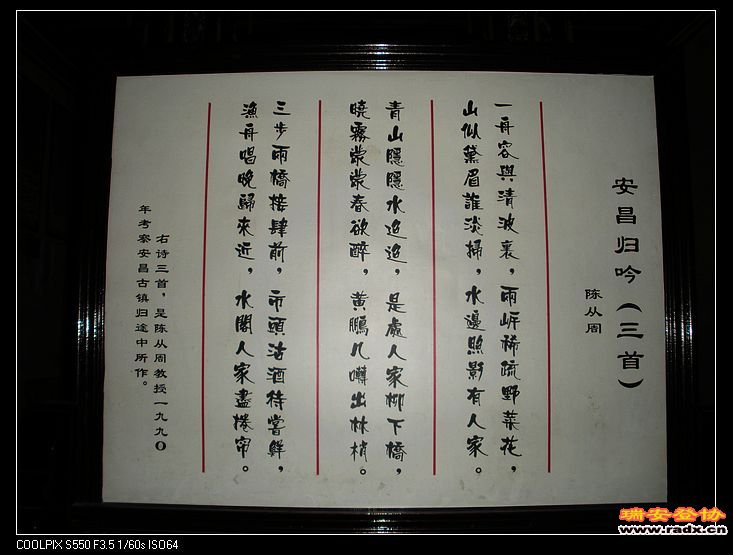 安昌归吟（三首）
陈从周
一舟容與清波裏，兩岸稀疏野菜花，
山似黛眉誰淡掃，水邊照影有人家。
青山隱隱水迢迢，是處人家柳下橋，
曉霧濛濛春欲醉，黄鵬几囀出林梢。
三步兩橋接肆前，市頭沽酒待嘗鮮，
漁舟唱晚歸來近，水閣人家盡捲帘。
右诗三首，是陈从周教授一九九〇
年考察安昌古镇归途中所作。
瑞安登协
www.radx.cn
COOLPIX S550 F3.5 1/60s ISO64